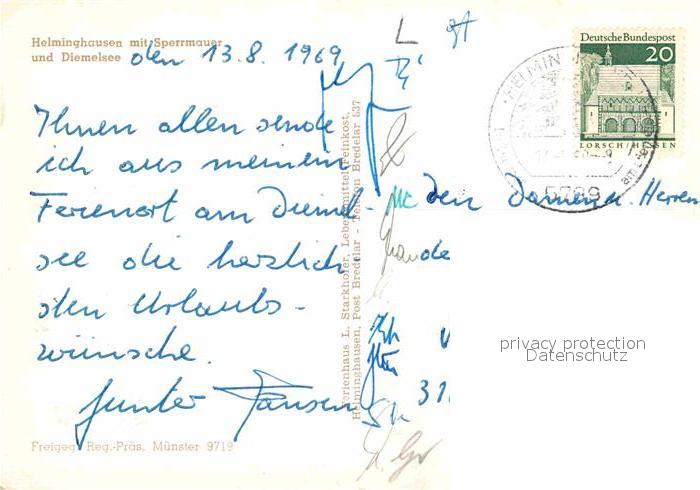 Helminghausen mit Sperrmauer
und Diemelsee
den 13.8.1969
Ihnen allen sende
ich aus meinem
Ferienort am Diemel-
see die herzlich-
sten Urlaubs-
wünsche.
Gunter Jansen
Freigeg. Reg.-Präs. Münster 9719
Ferienhaus L. Starkhofer, Lebensmittel, Feinkost,
Helminghausen, Post Bredelar - Telefon Bredelar 537
Deutsche Bundespost
20
LORSCH/HESSEN
HELMIN
5789
den Damen u. Herren
de
31
privacy protection
Datenschutz